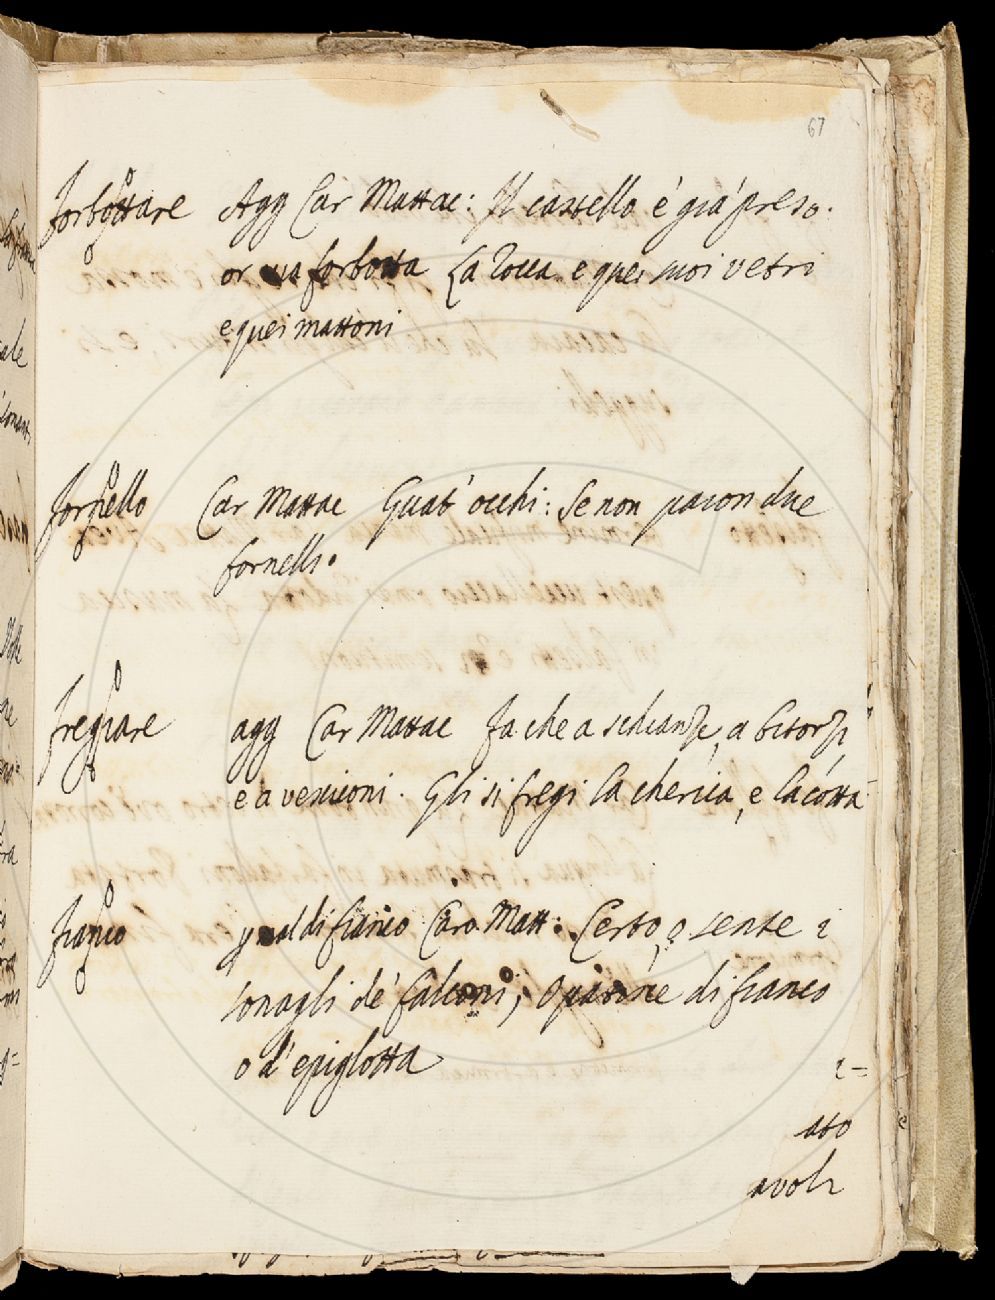 67
forbottare Agg Car Mattac: Il castello è già preso.
or forbotta La Rocca e quei suoi vetri
e quei mattoni
fornello Car Mattac Guat' occhi: Se non paion due
fornelli.
fregiare agg Car Mattac fa che a schianze, a bitorzi
e a vesciconi. Gli si fregi la cherica, e la cotta
fianco mal di fianco Caro Matt: Certo, o sente i
sonagli de' falconi, o patirne di fianco
o d'epiglotta
ato
avoli